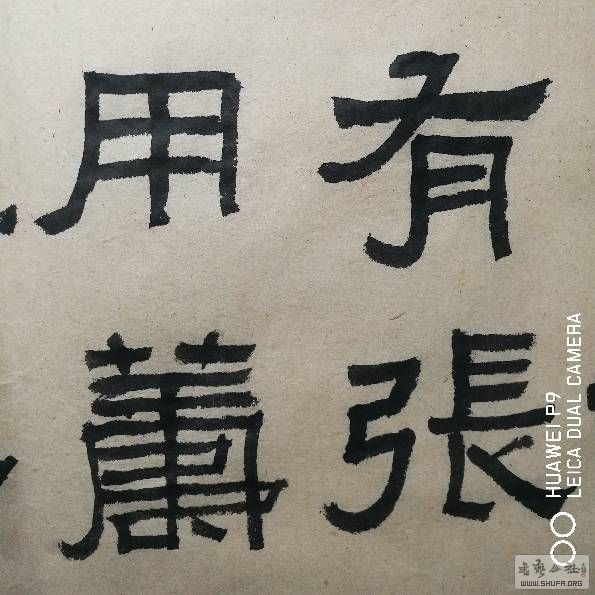 有張
用蕭
HUAWEI P9
LEICA DUAL CAMERA
书艺公社
WWW.SHUFA.ORG